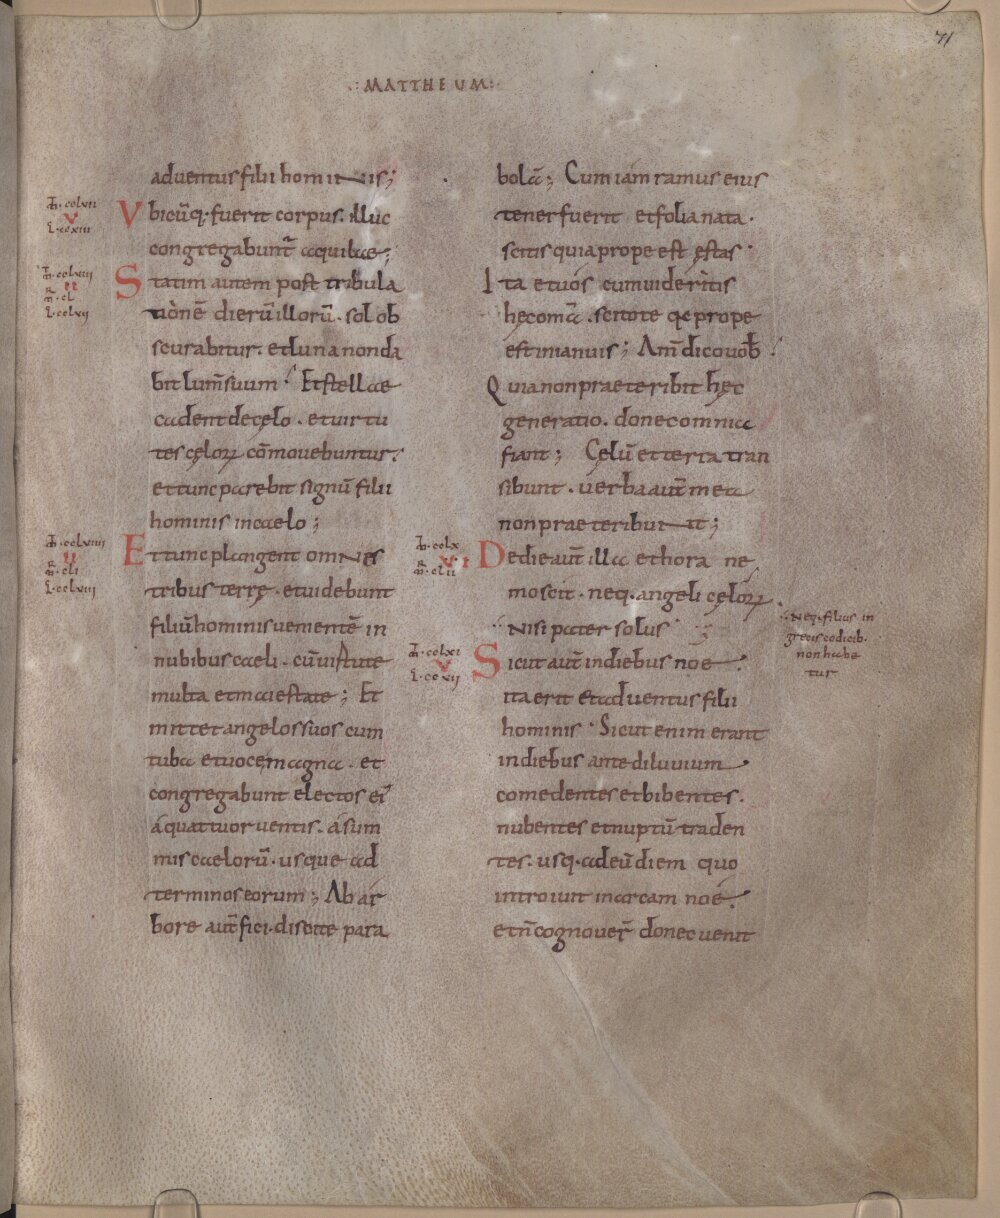 71
·:MATTHEUM:·
adventus filii hominis;
Ꝋ·cclvii
v
L·clxiii
Vbicūq·fuerit corpus. illuc
congregabunt̄ aquilae;
Ꝋ·cclviii
ii
m̄·cl
L·cclvii
Statim autem post tribula
tionē dierū illorū. sol ob
scurabitur. et luna non da
bit lum̄ suum. Et stellae
cadent de cęlo. et virtu
tes cęloꝝ cōmovebuntur.
et tunc parebit signū filii
hominis in caelo;
Ꝋ·cclviiii
ii
m̄·cli
L·cclviii
Et tunc plangent omnes
tribus terrę. et videbunt
filiū hominis venientē in
nubibus caeli. cū virtute
multa et maiestate; Et
mittet angelos suos cum
tuba et voce magna. et
congregabunt electos ei᾽
a quattuor ventis. a sum
mis caelorū. usque ad
terminos eorum; Ab ar
bore aut̄ fici. discite para
bolā; Cum iam ramus eius
tener fuerit et folia nata.
scitis quia prope est ęstas·
Ita et uós cum videritis
hęc om̄a. scitote qa prope
est in ianuis; Am̄ dico vob̄
Quia non praeteribit hęc
generatio. donec omnia
fiant; Cęlū et terra tran
sibunt. verba aut̄ mea
non praeteribunt;
Ꝋ·cclx
vi
m̄·clii
De die aut̄ illa et hora ne
mo scit. neq. angeli cęloꝝ.
Nisi pater solus
·:·Neq. filius in
grecis codicib.
non habe
tur
Ꝋ·cclxi
v
L·ccvii
Sicut aut̄ in diebus noe.
ita erit et adventus filii
hominis· Sicut enim erant
in diebus ante diluvium
comedentes et bibentes.
nubentes et nuptū traden
tes. usq. ad eū diem quo
introivit in arcam noe.
et n̄ cognover̄ donec venit